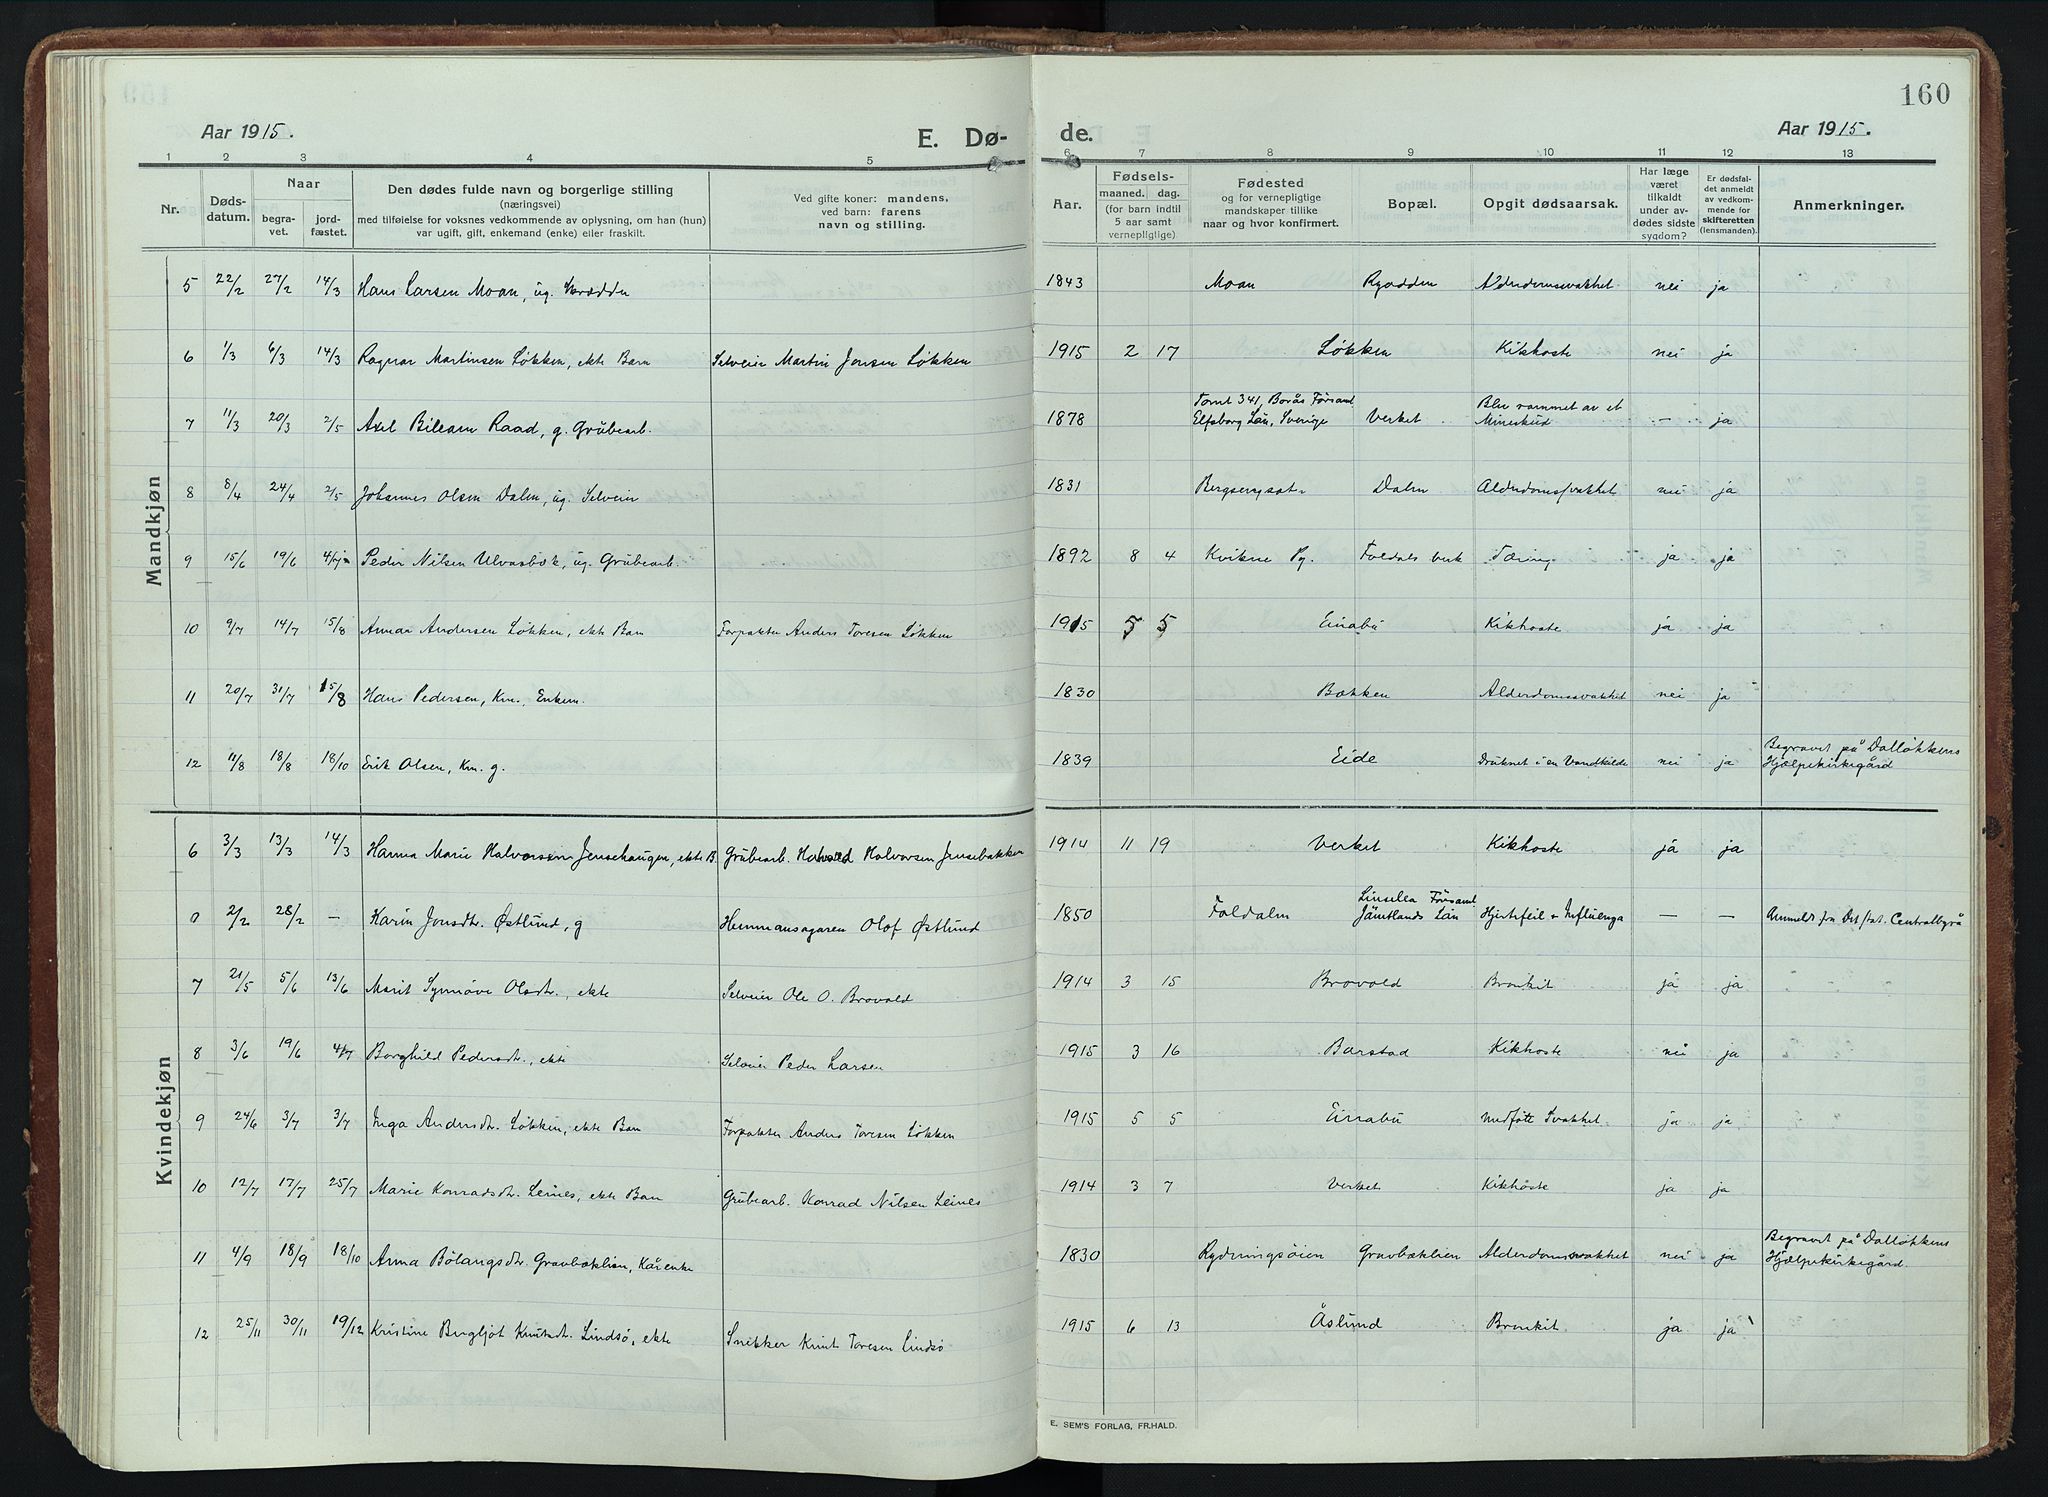 160
Aar 1915.
E. Dø-
de.
Aar 1915.
1 2 3 4 5 6 7 8 9 10 11 12 13
Nr.
Døds-
datum.
Naar
begra-
vet.
jord-
fæstet.
Den dødes fulde navn og borgerlige stilling
(næringsvei)
med tilføielse for voksnes vedkommende av oplysning, om han (hun)
var ugift, gift, enkemand (enke) eller fraskilt.
Ved gifte koner: mandens,
ved barn: farens
navn og stilling.
Aar.
Fødsels-
maaned. dag.
(for barn indtil
5 aar samt
vernepligtige)
Fødested
og for vernepligtige
mandskaper tillike
naar og hvor konfirmert.
Bopæl.
Opgit dødsaarsak.
Har læge
været
tilkaldt
under av-
dødes sidste
sygdom?
Er dødsfal-
det anmeldt
av vedkom-
mende for
skifteretten
(lensmanden).
Anmerkninger.
Mandkjøn
5 22/2 27/2 14/3 Hans Larsen Moan, ug. Skrædder 1843 Moan Ryodden Alderdomssvakhet nei ja
6 1/3 6/3 14/3 Ragnar Martinsen Løkken, ekte Barn Selveier Martin Jonsen Løkken 1915 2 17 Løkken Kikhoste nei ja
7 11/3 20/3 2/5 Axel Bileam Raad, g. Grubearb. 1878 Tomt 341, Borås Församl. Elfsborg Län, Sverige Verket Blev rammet av et Mineskud — ja
8 8/4 24/4 2/5 Johannes Olsen Dalen, ug. Selveier 1831 Dalen Alderdomssvakhet nei ja
9 15/6 19/6 Peder Nilsen Ulvasbæk, ug. Grubearb. 1892 8 4 Kvikne Pg. Foldals verk Tæring ja ja
10 9/7 14/7 15/8 Annar Andersen Løkken, ekte Barn Forpakter Anders Toresen Løkken 1915 5 5 Einabu Kikhoste ja ja
11 20/7 31/7 15/8 Hans Pedersen, Km., Enkem. 1830 Bækken Alderdomssvakhet nei ja
12 11/8 18/8 18/10 Erik Olsen, Km. g. 1839 Eide Druknet i en Vandkilde nei ja Begravet på Dalløkkens Hjælpekirkegård
Kvindekjøn
6 3/3 13/3 14/3 Hanna Marie Halvorsen Jensehaugen, ekte B. Grubearb. Halvord Halvorsen Jensebakken 1914 11 19 Verket Kikhoste ja ja
0 2/2 28/2 — Karin Jonsdtr. Østlund, g Hemmansagaren Olof Østlund 1850 Foldalen Linsella Församl. Jämtlands Län Hjertefeil + Influenza — — Anmeldt fra Det stat. Centralbyrå
7 21/5 5/6 13/6 Marit Synnøve Olsdtr., ekte Selveier Ole O. Brovold 1914 3 15 Brovold Bronkit ja ja
8 3/6 19/6 4/7 Borghild Pedersdtr., ekte Selveier Peder Larsen 1915 3 16 Barstad Kikhoste nei ja
9 24/6 3/7 3/7 Inga Andersdtr. Løkken, ekte Barn Forpakter Anders Toresen Løkken 1915 5 5 Einabu medføtt Svakhet. ja ja
10 12/7 17/7 25/7 Marie Konradsdtr. Leines, ekte Barn Grubearb. Konrad Nilsen Leines 1914 3 7 Verket Kikhoste ja ja
11 4/9 18/9 18/10 Anna Gravbæklien, Kårenke 1830 Rydningsøien Gravbæklien Alderdomssvakhet nei ja Begravet på Dalløkkens Hjælpekirkegård.
12 25/11 30/11 19/12 Kristine Bergljot Knutsdtr. Lindsø, ekte Snekker Knut Toresen Lindsø 1915 6 13 Åslund Bronkit. ja ja
E. SEM'S FORLAG, FR.HALD.